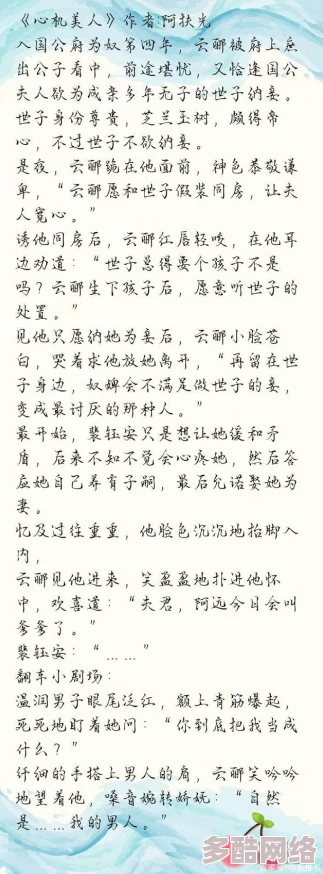 《心机美人》作者:阿扶光
入国公府为奴第四年，云郦被府上庶
出公子看中，前途堪忧，又恰逢国公
夫人欲为成亲多年无子的世子纳妾。
世子身份尊贵，芝兰玉树，颇得帝
心，不过世子不欲纳妾。
是夜，云郦跪在他面前，神色恭敬谦
卑，“云郦愿和世子假装同房，让夫
人宽心。”
诱他同房后，云郦红唇轻咬，在他耳
边劝道：“世子总得要个孩子不是
吗？云郦生下孩子后，愿意听世子的
处置。”
见他只愿纳她为妾后，云郦小脸苍
白，哭着求他放她离开，“再留在世
子身边，奴婢会不满足做世子的妾，
变成最讨厌的那种人。”
最开始，裴钰安只是想让她缓和矛
盾，后来不知不觉会心疼她，然后答
应她自己养育子嗣，最后允诺娶她为
妻。
忆及过往重重，他脸色沉沉地抬脚入
内，
云郦见他进来，笑盈盈地扑进他怀
中，欢喜道：“夫君，阿远今日会叫
爹爹了。”
裴钰安：“……”
翻车小剧场：
温润男子眼尾泛红，额上青筋爆起，
死死地盯着她问：“你到底把我当成
什么？”
纤细的手搭上男人的肩，云郦笑吟吟
地望着他，嗓音婉转娇妩：“自然
是……我的男人。”
多酷网络